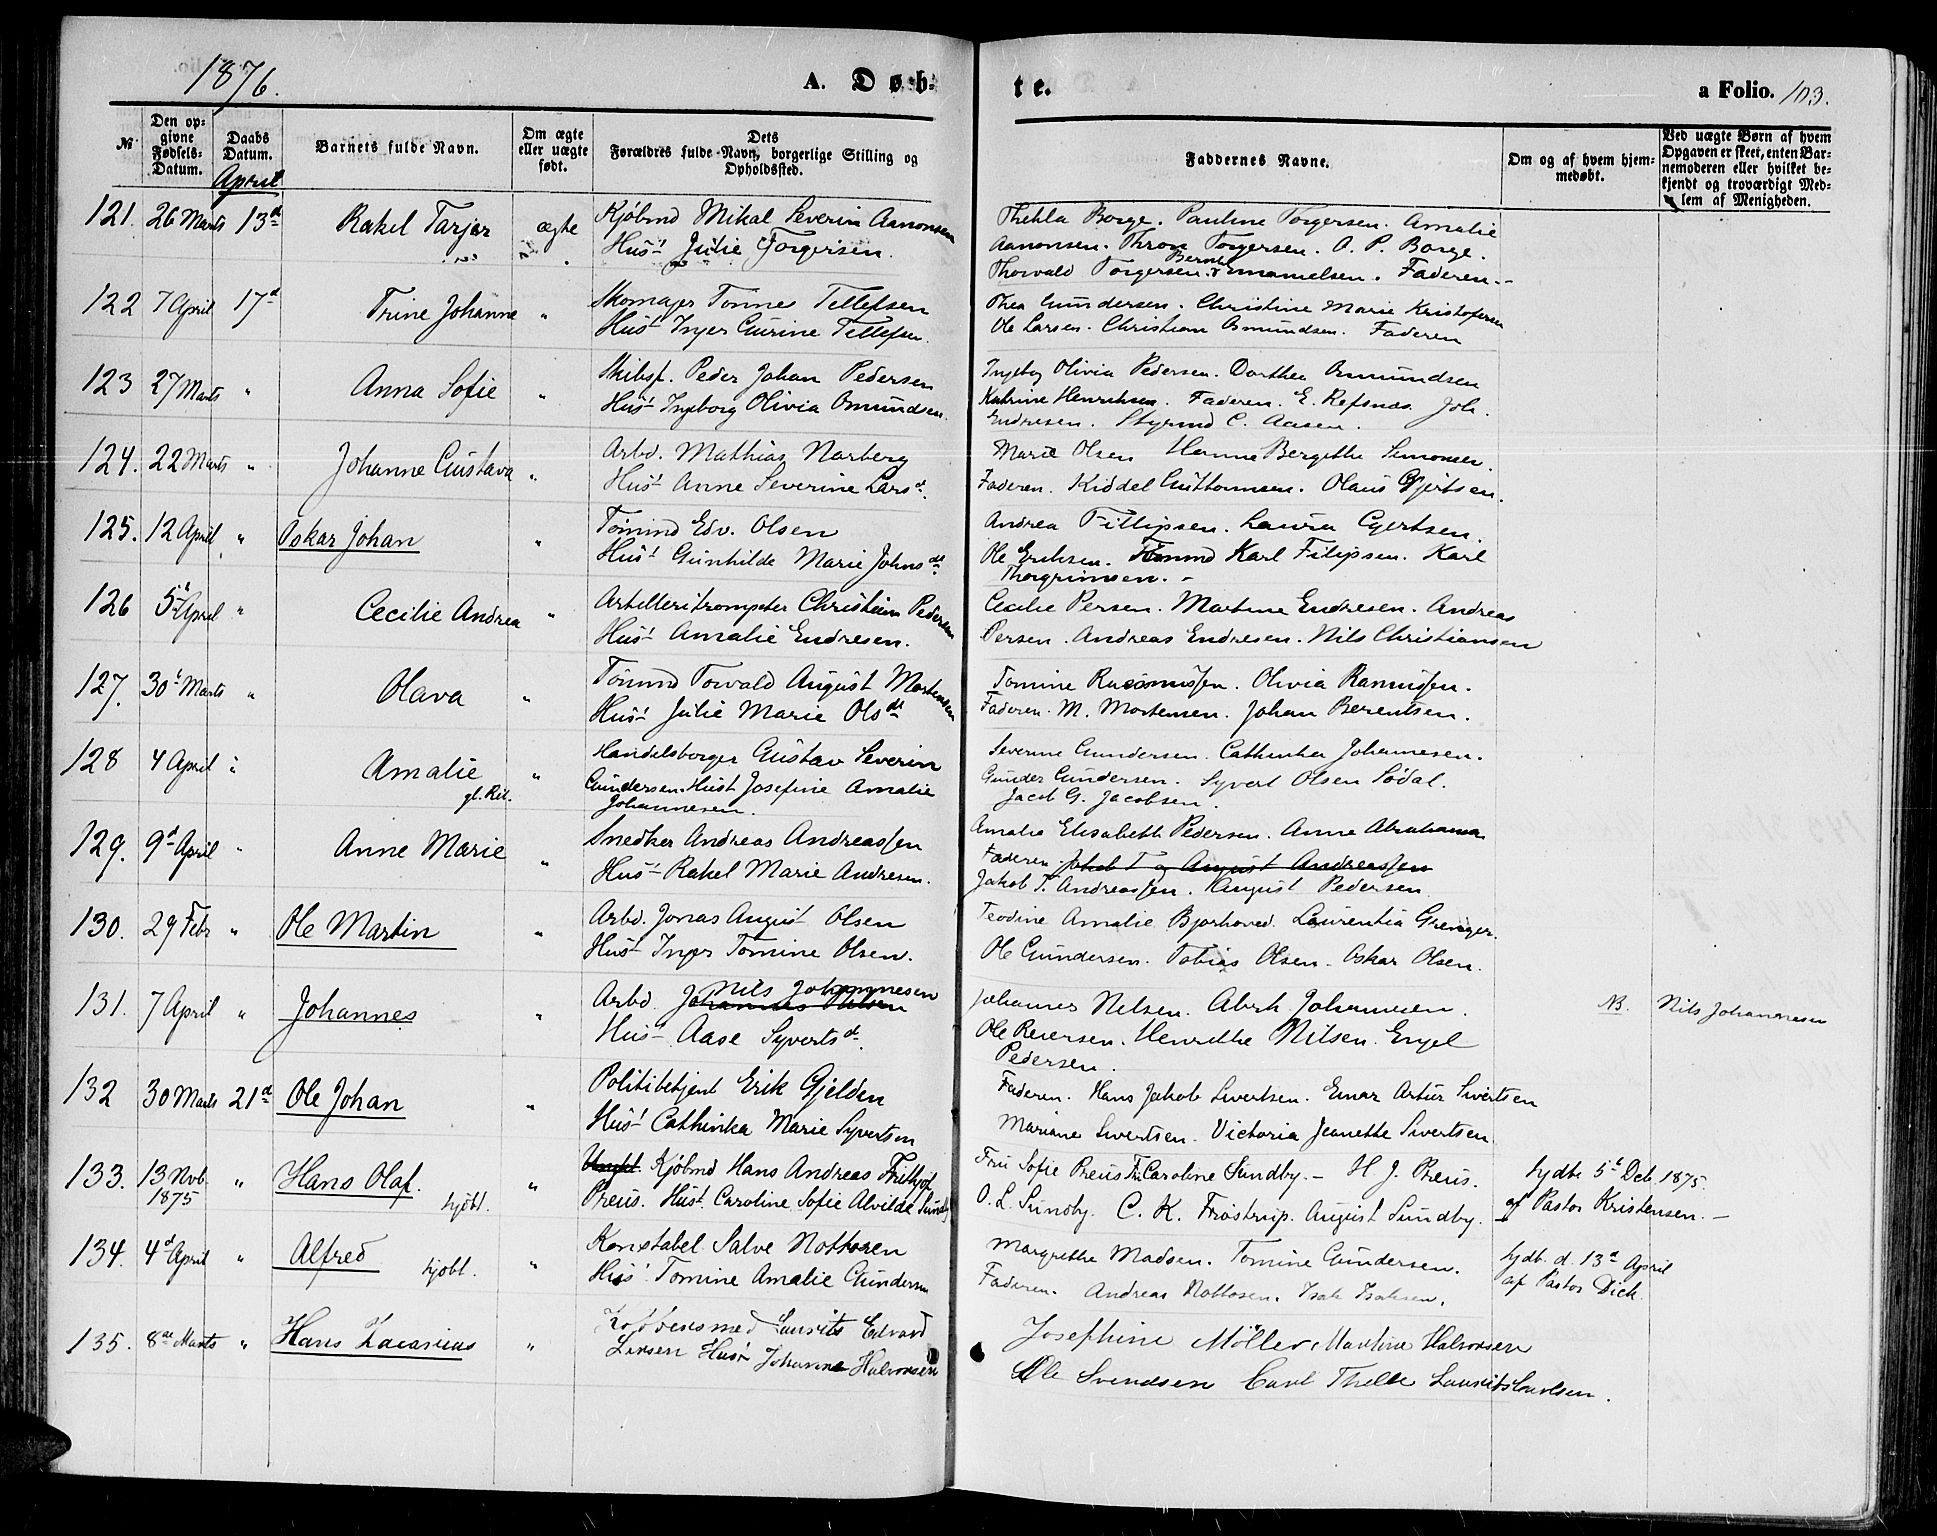 1876.
A. Døb-
te.
a Folio. 103.
№
Den op-
givne
Fødsels-
Datum.
Daabs
Datum.
April
Barnets fulde Navn.
Om ægte
eller uægte
født.
Dets
Forældres fulde Navn, borgerlige Stilling og
Opholdssted.
Faddernes Navne.
Om og af hvem hjem-
medøbt.
Ved uægte Børn af hvem
Opgaven er skeet, enten Bar-
nemoderen eller hvilket be-
kjendt og troværdigt Med-
lem af Menigheden.
121. 26 Marts 13d Rakel Tarjer ægte Kjøbmd Mikal Severin Aanonsen
Hust Julie Torgersen.
Thekla Borge. Pauline Torgersen. Amalie
Aanonsen. Throne Torgersen. O. P. Borge.
Thorvald Torgersen. Bernt Emanuelsen. Faderen.
122 7 April 17d Trine Johanne " Skomager Tonne Tellefsen
Hust Inger Gurine Tellefsen.
Thea Gundersen. Christine Marie Kristofersen
Ole Larsen. Christian Osmundsen. Faderen
123 27 Marts " Anna Sofie " Skibsf. Peder Johan Pedersen
Hust Ingeborg Olivia Osmundsen.
Ingebg Olivia Pedersen. Dorthea Osmundsen
Katrine Henriksen. Faderen. E. Refsnæs. Joh.
Endresen. Styrmd C. Aasen.
124. 22 Marts " Johanne Gustava " Arbd. Mathias Norberg
Hust Anne Severine Larsd.
Marie Olsen Hanne Bergitte Simonsen.
Faderen. Kiddel Guttormsen. Olaus Gjertsen.
125. 12 April " Oskar Johan " Tømmd Edv. Olsen
Hust Gunhilde Marie Johnsdt.
Andrea Fillipsen. Laura Gjertsen.
Ole Eriksen. Tømmd Karl Filipsen. Karl
Thorgrimsen.
126 5t April " Cecilie Andrea " Artelleritrompeter Christian Pedersen
Hust Amalie Endresen.
Cecilie Persen. Martine Endresen. Andreas
Persen. Andreas Endresen. Nils Christiansen
127. 30t Marts " Olava " Tømmd Torvald August Mortensen
Hust Julie Marie Olsdt
Tomine Rasmussen. Olivia Rasmussen.
Faderen. M. Mortensen. Johan Berentsen.
128 4 April " Amalie gl. Rit. " Handelsborger Gustav Severin
Gundersen. Hust Josefine Amalie
Johannesen.
Severine Gundersen. Cathinka Johannesen.
Gunder Gundersen. Syvert Olsen Sødal.
Jacob G. Jacobsen.
129. 9d April " Anne Marie " Snedker Andreas Andreassen
Hust Rakel Marie Andresen.
Amalie Elisabeth Pedersen. Anne Abrahamsen
Faderen. Jakob T og August Andreassen
Jakob T. Andreassen. August Pedersen
130. 29 Febr " Ole Martin " Arbd. Jonas August Olsen
Hust Inger Tomine Olsen.
Teodine Amalie Bjorhoved. Laurentia Greniger.
Ole Gundersen. Tobias Olsen. Oskar Olsen.
131. 7 April " Johannes " Arbd. Johannes Nilsen Nils Johannesen
Hust Aase Syvertsd.
Johannes Nelsen. Abrh Johannesen.
Ole Reiersen. Henrithe Nilsen. Engel
Pedersen.
NB. Nils Johannesen
132 30 Marts 21d Ole Johan " Politibetjent Erik Gjelden
Hust Cathinka Marie Syvertsen
Faderen. Hans Jakob Sivertsen. Einar Artur Sivertsen
Mariane Sivertsen. Victoria Jeanette Sivertsen.
133. 13 Novb. 1875 " Hans Olaf. hjdbt. " Kjøbmd Hans Andreas Frithjof
Preus. Hust. Caroline Sofie Alvilde Sundby
Fru Sofie Preus Fr. Caroline Sundby. – H. J. Preus.
O. L. Sundby. C. K. Frøstrup. August Sundby.
hjdbt 5t Deb. 1875.
af Pastor Kristensen. –
134. 4d April " Alfred hjobt. " Konstabel Salve Nottosen
Hust Tomine Amalie Gundersen
Margrethe Madsen. Tomine Gundersen.
Faderen. Andreas Nottosen. Isak Isaksen.
hjdb. d. 13d April
af Pastor Dick.
135. 8de Marts " Hans Zacarius " Kobbersmed Laurits Edvard
Larsen Hust Johanne Halvorsen
Josephine Möller, Martine Halvorsen
Ole Svendsen Carl Thelle Laurits Carlsen.